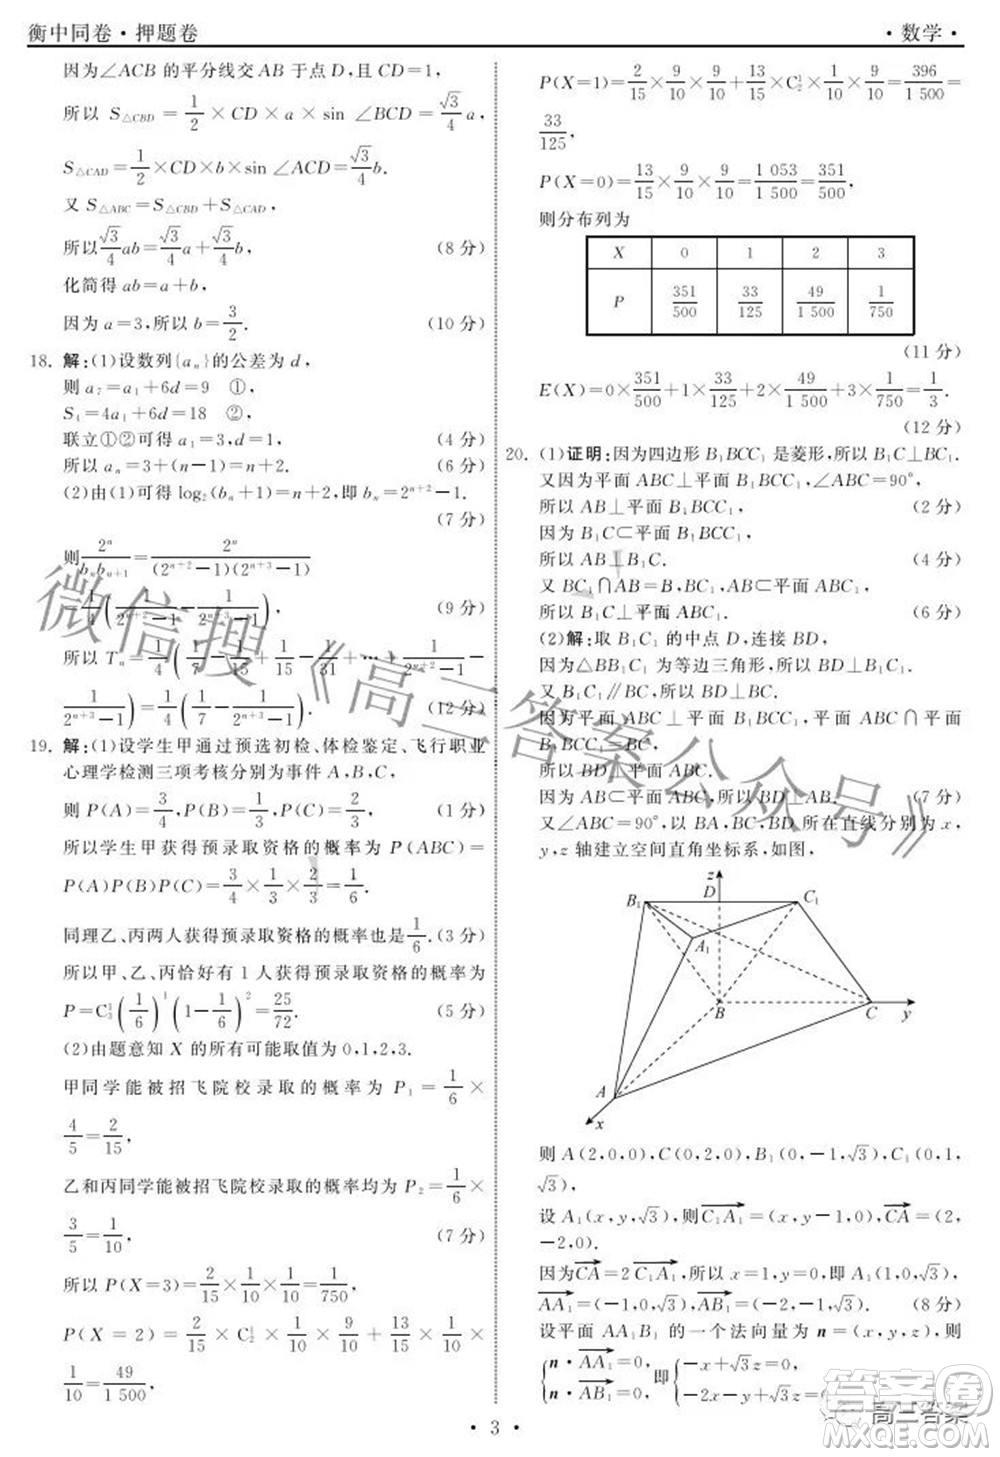 衡中同卷·押题卷
·数学·
因为∠ACB 的平分线交 AB 于点 D,且 CD=1,
所以 S△CBD = 1/2 × CD × a × sin ∠BCD = √3/4 a,
S△CAD = 1/2 ×CD×b×sin ∠ACD= √3/4 b.
又 S△ABC=S△CBD+S△CAD,
所以 √3/4 ab= √3/4 a+ √3/4 b, (8 分)
化简得 ab=a+b,
因为 a=3,所以 b= 3/2. (10 分)
18. 解:(1)设数列{aₙ}的公差为 d,
则 a₇=a₁+6d=9 ①,
S₄=4a₁+6d=18 ②,
联立①②可得 a₁=3,d=1, (4 分)
所以 aₙ=3+(n-1)=n+2. (6 分)
(2)由(1)可得 log₂(bₙ+1)=n+2,即 bₙ=2ⁿ⁺²-1.
(7 分)
则 2ⁿ/(bₙbₙ₊₁) = 2ⁿ/((2ⁿ⁺²-1)(2ⁿ⁺³-1))
= 1/4 (1/(2ⁿ⁺²-1) - 1/(2ⁿ⁺³-1)), (9 分)
所以 Tₙ= 1/4 (1/7 - 1/15 + 1/15 - 1/31 +…+ 1/(2ⁿ⁺²-1) -
1/(2ⁿ⁺³-1)) = 1/4 (1/7 - 1/(2ⁿ⁺³-1)). (12 分)
19. 解:(1)设学生甲通过预选初检、体检鉴定、飞行职业
心理学检测三项考核分别为事件 A,B,C,
则 P(A)= 3/4,P(B)= 1/3,P(C)= 2/3, (1 分)
所以学生甲获得预录取资格的概率为 P(ABC)=
P(A)P(B)P(C)= 3/4 × 1/3 × 2/3 = 1/6.
同理乙、丙两人获得预录取资格的概率也是 1/6.(3 分)
所以甲、乙、丙恰好有 1 人获得预录取资格的概率为
P=C₃¹(1/6)¹(1-1/6)²= 25/72. (5 分)
(2)由题意知 X 的所有可能取值为 0,1,2,3.
甲同学能被招飞院校录取的概率为 P₁ = 1/6 ×
4/5 = 2/15,
乙和丙同学能被招飞院校录取的概率均为 P₂ = 1/6 ×
3/5 = 1/10, (7 分)
所以 P(X=3)= 2/15 × 1/10 × 1/10 = 1/750,
P(X = 2) = 2/15 × C₂¹ × 1/10 × 9/10 + 13/15 × 1/10 ×
1/10 = 49/1 500,
P(X=1)= 2/15 × 9/10 × 9/10 + 13/15 ×C₂¹× 1/10 × 9/10 = 396/1 500 =
33/125,
P(X=0)= 13/15 × 9/10 × 9/10 = 1 053/1 500 = 351/500,
则分布列为
X 0 1 2 3
P 351/500 33/125 49/1 500 1/750
(11 分)
E(X)=0× 351/500 +1× 33/125 +2× 49/1 500 +3× 1/750 = 1/3.
(12 分)
20. (1)证明:因为四边形 B₁BCC₁ 是菱形,所以 B₁C⊥BC₁.
又因为平面 ABC⊥平面 B₁BCC₁,∠ABC=90°,
所以 AB⊥平面 B₁BCC₁, (2 分)
因为 B₁C⊂平面 B₁BCC₁,
所以 AB⊥B₁C. (4 分)
又 BC₁∩AB=B,AB⊂平面 ABC₁,
所以 B₁C⊥平面 ABC₁. (6 分)
(2)解:取 B₁C₁ 的中点 D,连接 BD,
因为△BB₁C₁ 为等边三角形,所以 BD⊥B₁C₁.
因为 B₁C₁∥BC,所以 BD⊥BC.
因为平面 ABC⊥平面 B₁BCC₁,平面 ABC∩平面
B₁BCC₁=BC,
所以 BD⊥平面 ABC.
因为 AB⊂平面 ABC,所以 BD⊥AB. (7 分)
又∠ABC=90°,以 BA,BC,BD 所在直线分别为 x,
y,z 轴建立空间直角坐标系,如图,
z
D
B₁
C₁
A₁
B
C
y
A
x
则 A(2,0,0),C(0,2,0),B₁(0,-1,√3),C₁(0,1,
√3),
设 A₁(x,y,√3),则C₁A₁=(x,y-1,0),CA=(2,
-2,0).
因为CA=2 C₁A₁,所以 x=1,y=0,即 A₁(1,0,√3),
AA₁=(-1,0,√3),AB₁=(-2,-1,√3). (8 分)
设平面 AA₁B₁ 的一个法向量为 n=(x,y,z),则
{n·AA₁=0, n·AB₁=0, 即{-x+√3z=0, -2x-y+√3z=0,
· 3 ·
微信搜《高三答案公众号》
答案圈
高三答案